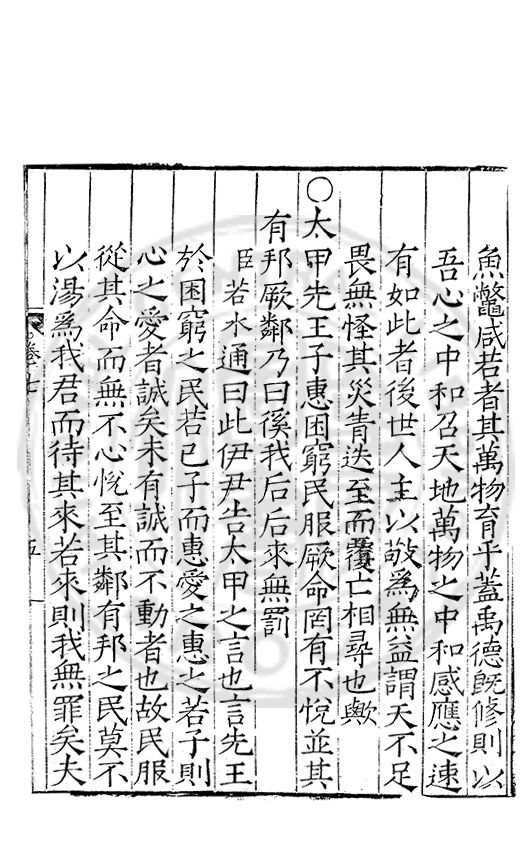 魚鼈咸若者其萬物育乎蓋禹德旣修則以
吾心之中和召天地萬物之中和感應之速
有如此者後世人主以敬爲無益謂天不足
畏無怪其災眚迭至而覆亡相尋也歟
○太甲先王子惠困窮民服厥命罔有不悅並其
有邦厥鄰乃曰徯我后后來無罰
臣若水通曰此伊尹告太甲之言也言先王
於困窮之民若已子而惠愛之惠之若子則
心之愛者誠矣未有誠而不動者也故民服
從其命而無不心悅至其鄰有邦之民莫不
以湯爲我君而待其來若來則我無罪矣夫
卷七
五